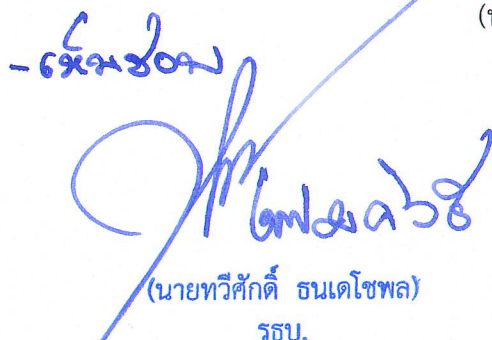 (น
-เห็นชอบ
(นายทวีศักดิ์ ธนเดโชพล)
รธบ.